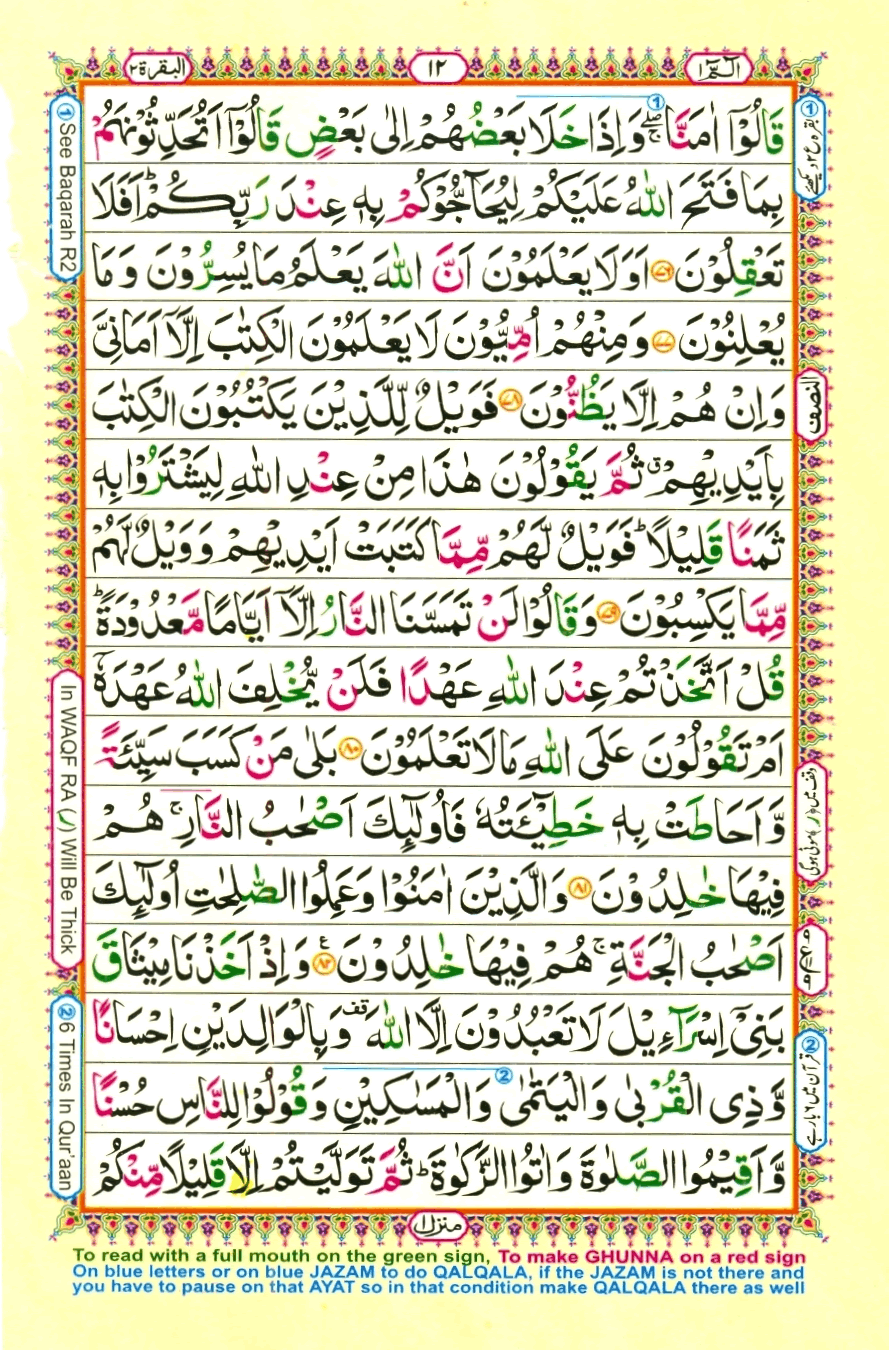 الٓمّٓ ١
١٢
البقرة ٢
قَالُوْۤا اٰمَنَّا ۖۚ وَاِذَا خَلَا بَعْضُهُمْ اِلٰى بَعْضٍ قَالُوْۤا اَتُحَدِّثُوْنَهُمْ
بِمَا فَتَحَ اللّٰهُ عَلَيْكُمْ لِيُحَآجُّوْكُمْ بِهٖ عِنْدَ رَبِّكُمْ ؕ اَفَلَا
تَعْقِلُوْنَ ﴿۷۶﴾ اَوَلَا يَعْلَمُوْنَ اَنَّ اللّٰهَ يَعْلَمُ مَا يُسِرُّوْنَ وَمَا
يُعْلِنُوْنَ ﴿۷۷﴾ وَمِنْهُمْ اُمِّيُّوْنَ لَا يَعْلَمُوْنَ الْكِتٰبَ اِلَّاۤ اَمَانِيَّ
وَاِنْ هُمْ اِلَّا يَظُنُّوْنَ ﴿۷۸﴾ فَوَيْلٌ لِّلَّذِيْنَ يَكْتُبُوْنَ الْكِتٰبَ
بِاَيْدِيْهِمْ ۗ ثُمَّ يَقُوْلُوْنَ هٰذَا مِنْ عِنْدِ اللّٰهِ لِيَشْتَرُوْا بِهٖ
ثَمَنًا قَلِيْلًا ؕ فَوَيْلٌ لَّهُمْ مِّمَّا كَتَبَتْ اَيْدِيْهِمْ وَوَيْلٌ لَّهُمْ
مِّمَّا يَكْسِبُوْنَ ﴿۷۹﴾ وَقَالُوْا لَنْ تَمَسَّنَا النَّارُ اِلَّاۤ اَيَّامًا مَّعْدُوْدَةً ؕ
قُلْ اَتَّخَذْتُمْ عِنْدَ اللّٰهِ عَهْدًا فَلَنْ يُّخْلِفَ اللّٰهُ عَهْدَهٗۤ
اَمْ تَقُوْلُوْنَ عَلَى اللّٰهِ مَا لَا تَعْلَمُوْنَ ﴿۸۰﴾ بَلٰى مَنْ كَسَبَ سَيِّئَةً
وَّاَحَاطَتْ بِهٖ خَطِيْٓئَتُهٗ فَاُولٰٓئِكَ اَصْحٰبُ النَّارِ ۚ هُمْ
فِيْهَا خٰلِدُوْنَ ﴿۸۱﴾ وَالَّذِيْنَ اٰمَنُوْا وَعَمِلُوا الصّٰلِحٰتِ اُولٰٓئِكَ
اَصْحٰبُ الْجَنَّةِ ۚ هُمْ فِيْهَا خٰلِدُوْنَ ﴿۸۲﴾ ع وَاِذْ اَخَذْنَا مِيْثَاقَ
بَنِيْۤ اِسْرَآءِيْلَ لَا تَعْبُدُوْنَ اِلَّا اللّٰهَ قف وَبِالْوَالِدَيْنِ اِحْسَانًا
وَّذِي الْقُرْبٰى وَالْيَتٰمٰى وَالْمَسٰكِيْنِ وَقُوْلُوْا لِلنَّاسِ حُسْنًا
وَّاَقِيْمُوا الصَّلٰوةَ وَاٰتُوا الزَّكٰوةَ ؕ ثُمَّ تَوَلَّيْتُمْ اِلَّا قَلِيْلًا مِّنْكُمْ
النصف
① See Baqarah R2
In WAQF RA (ر) Will Be Thick
② 6 Times In Qur'aan
منزل ١
To read with a full mouth on the green sign, To make GHUNNA on a red sign
On blue letters or on blue JAZAM to do QALQALA, if the JAZAM is not there and
you have to pause on that AYAT so in that condition make QALQALA there as well